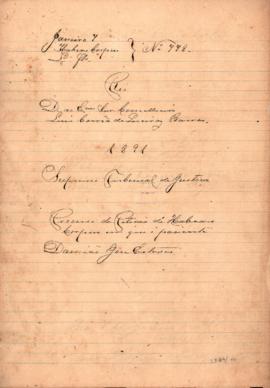 Janeiro 7
Habeas Corpus
Nº 778
D. ao Exmo Snr Conselheiro
Luiz Corrêa de Queiroz Barros
1891
Supremo Tribunal de Justiça
Recurso de Petição de Habeas
Corpus em que é paciente
Damião José